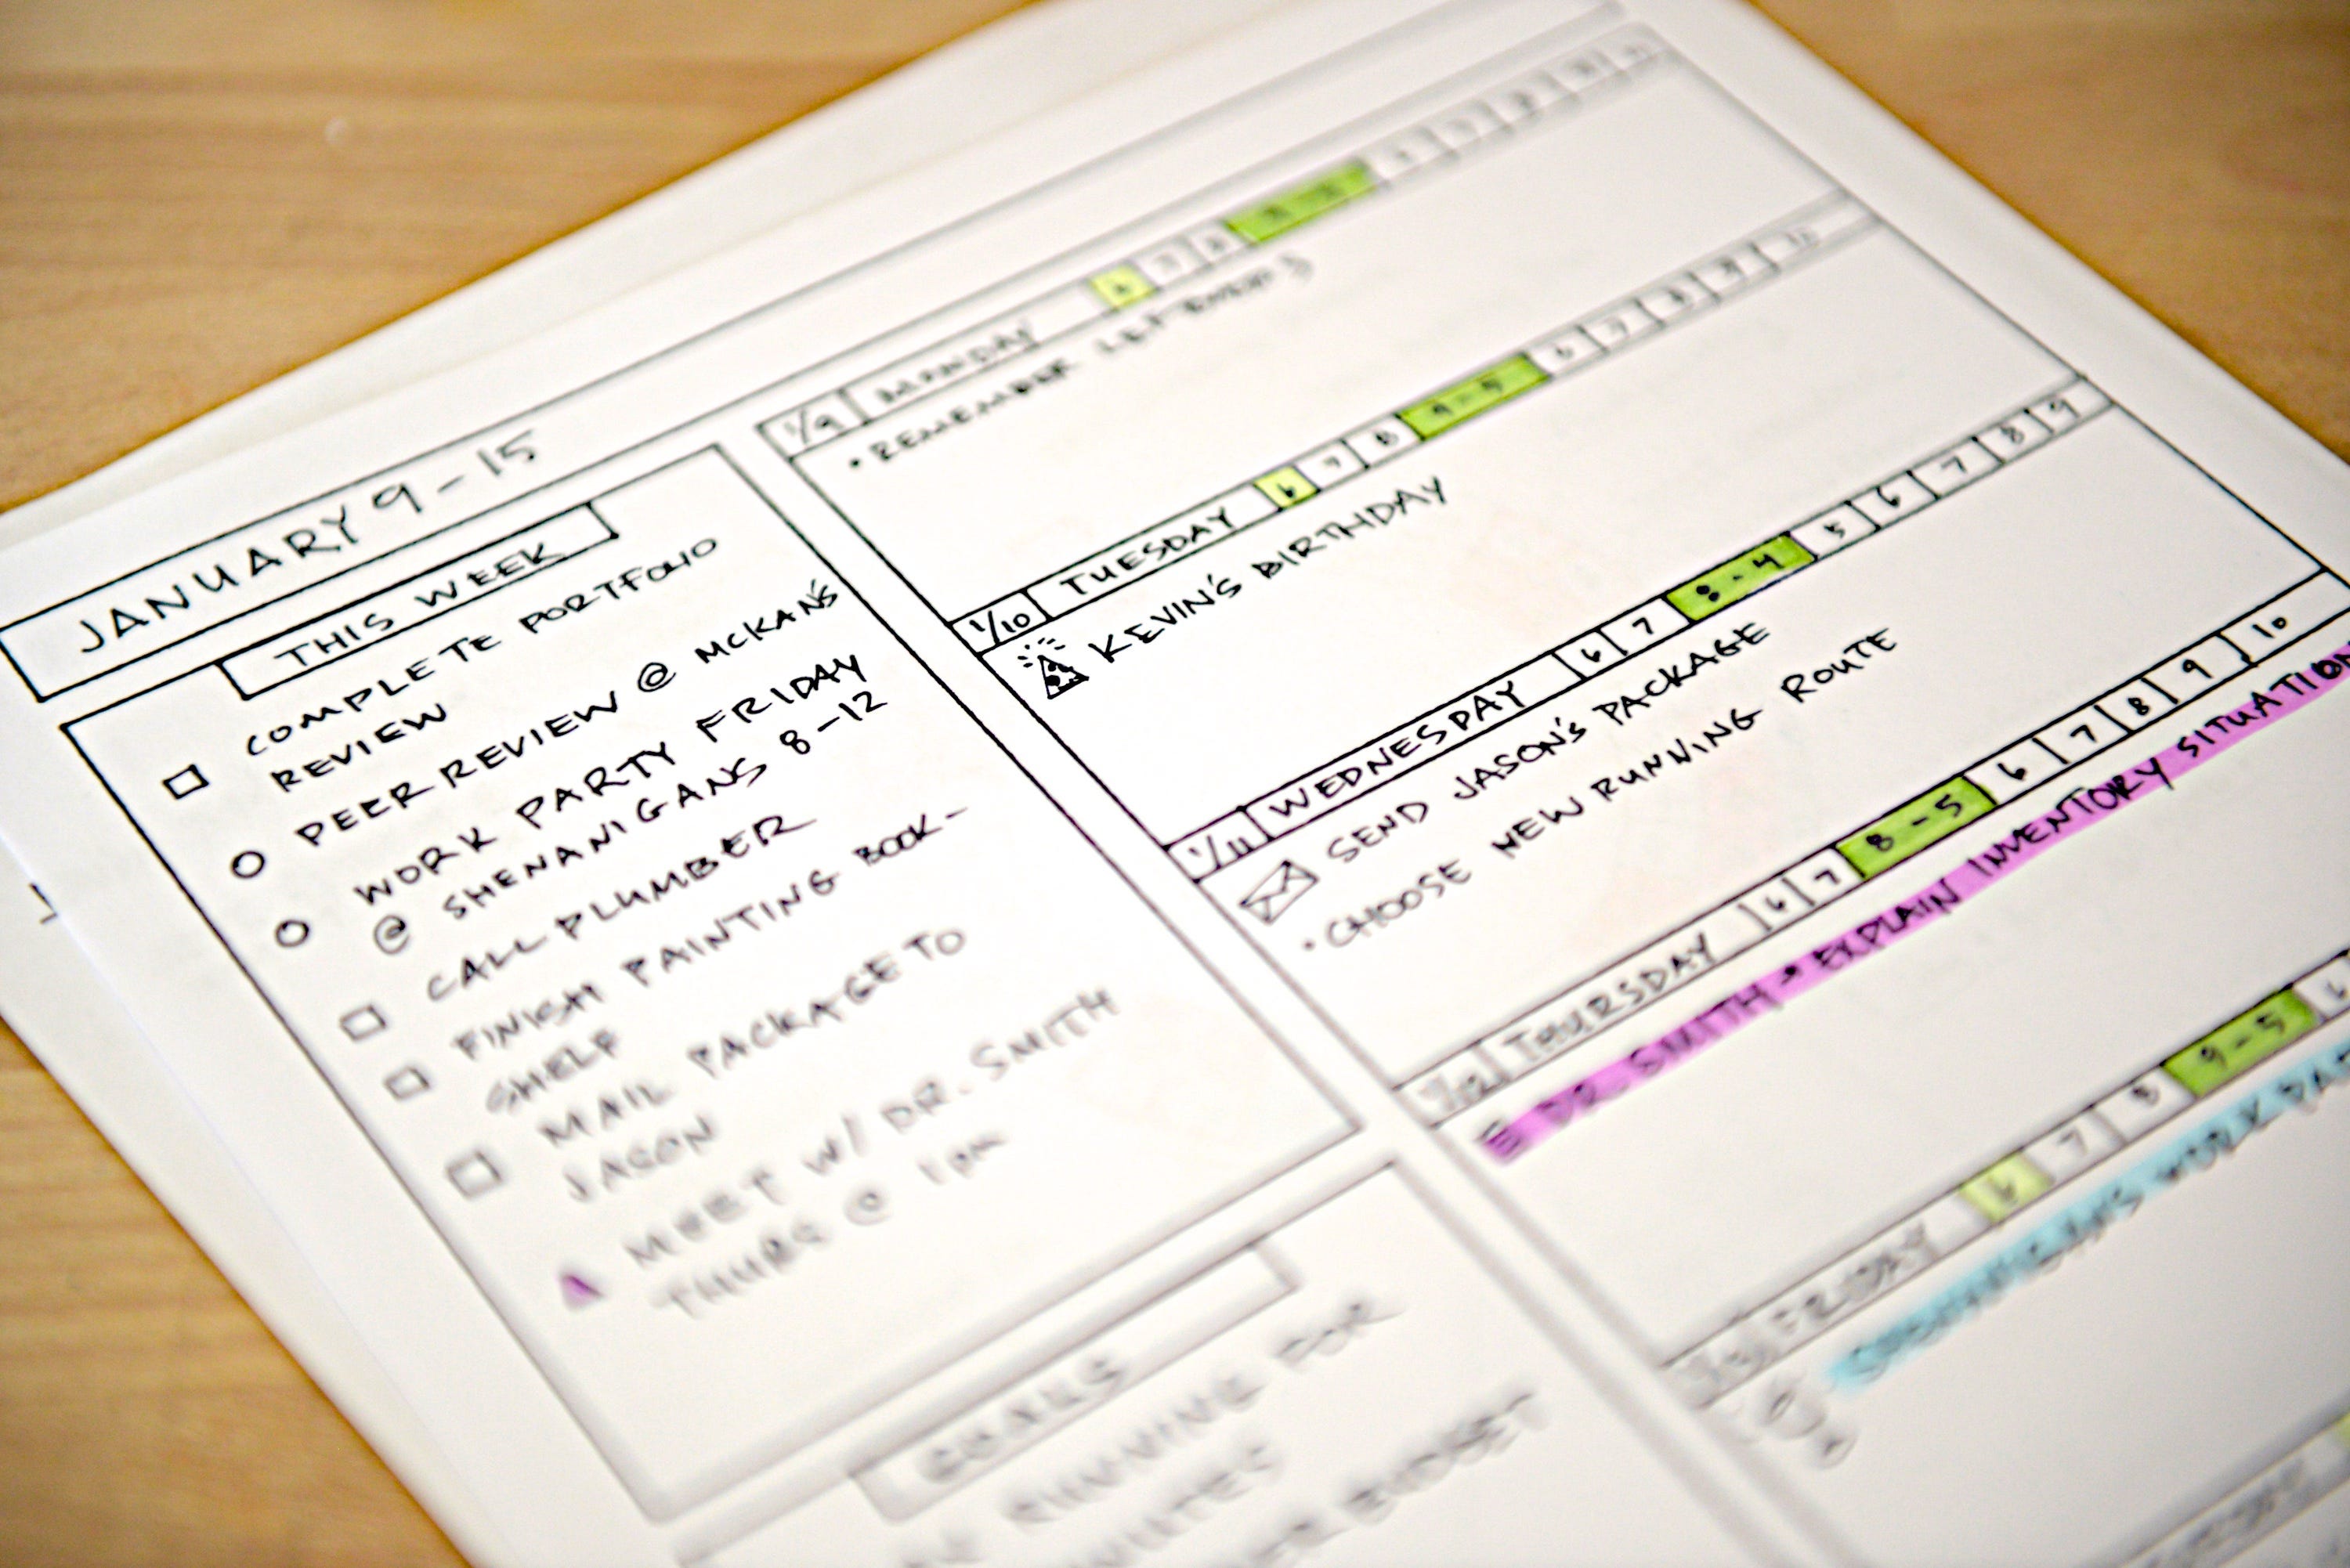 JANUARY 9-15
THIS WEEK
COMPLETE PORTFOLIO
REVIEW
PEER REVIEW @ MCKAN'S
WORK PARTY FRIDAY
@ SHENANIGANS 8-12
CALL PLUMBER
FINISH PAINTING BOOK-
SHELF
MAIL PACKAGE TO
JASON
MEET W/ DR. SMITH
THURS @ 1PM
GOALS
RUNNING FOR
MINUTES
BUDGET
1/9 MONDAY 6 7 8
• REMEMBER LEFTOVERS
1/10 TUESDAY 6 7 8 9-5 6 7 8 9 10
KEVIN'S BIRTHDAY
1/11 WEDNESDAY 6 7 8-4 5 6 7 8 9
SEND JASON'S PACKAGE
• CHOOSE NEW RUNNING ROUTE
1/12 THURSDAY 6 7 8-5 6 7 8 9 10
DR. SMITH - EXPLAIN INVENTORY SITUATION
FRIDAY 6 7 8 9-5 6
WORK